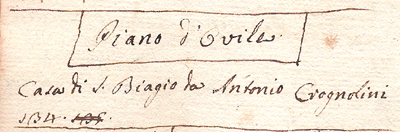 Piano d'Ovile.
Casa di S. Biagio da Antonio Crognolini
134.